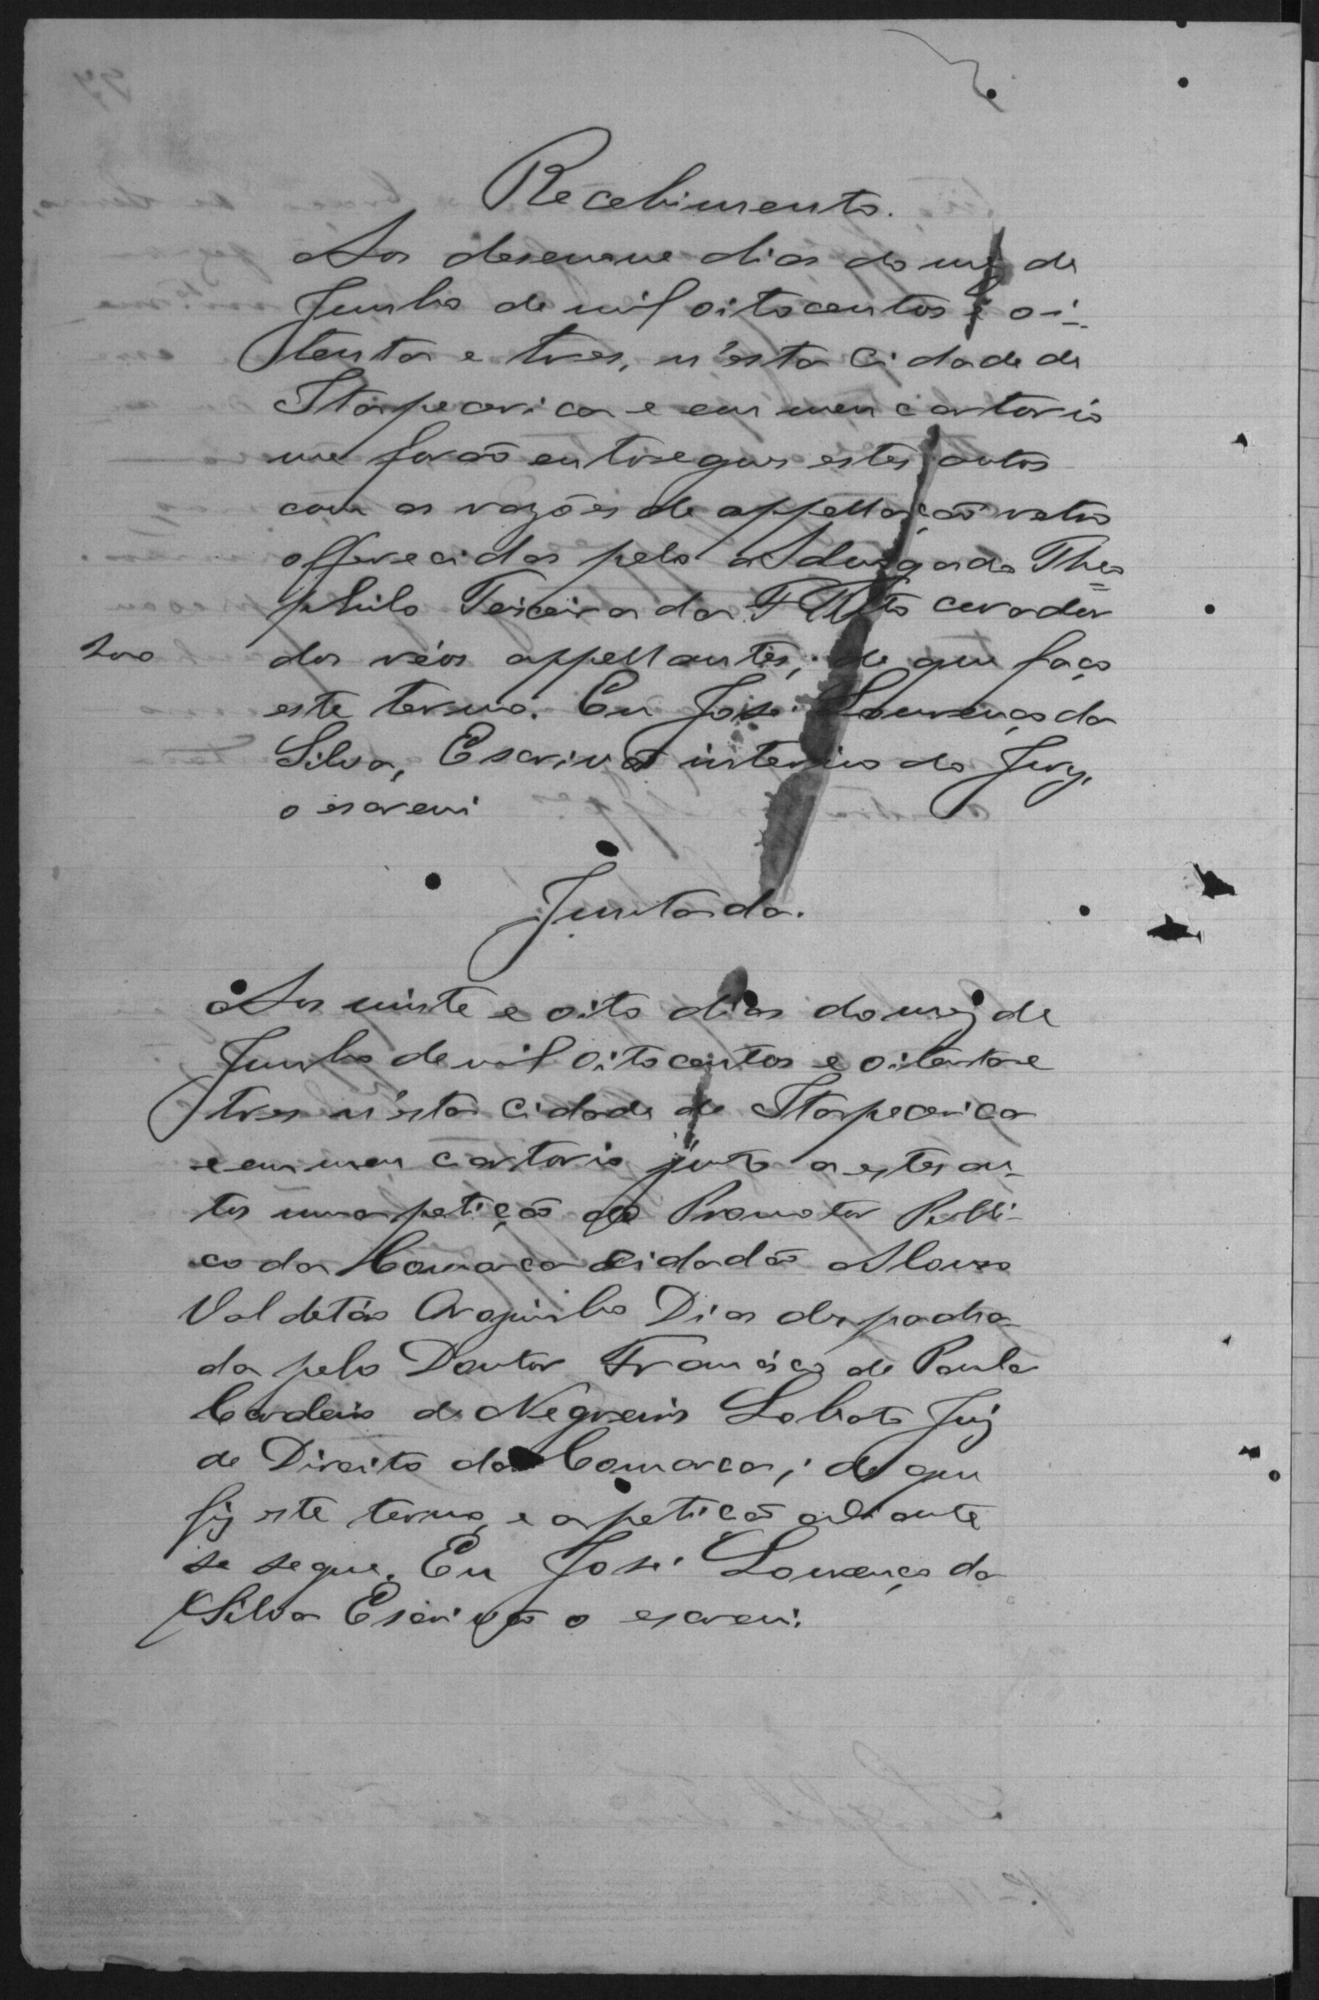 Recebimento.
Aos desenove dias do mez de
Junho de mil oitocentos e oi-
tenta e tres, n'esta Cidade de
Itapecerica e em meu cartorio
me forão entregues estes autos
com as razões de appellação retro
offerecidas pelo Advogado Theo=
philo Teixeira da curador
dos réos appellantes, de que faço
este termo. Eu José Lourenço da
Silva, Escrivão interino do Jury,
o escrevi
Juntada.
Aos vinte e oito dias do mez de
Junho de mil oitocentos e oitenta e
tres n'esta Cidade de Itapecerica
e em meu cartorio junto a estes au-
tos uma petição do Promotor Publi-
co da Comarca Cidadão
Dias despacha-
da pelo Doutor Francisco de Paula
Cordeiro de Negreiros Lobato Juiz
de Direito da Comarca; de que
fiz este termo, e a petição adiante
se segue. Eu José Lourenço da
Silva Escrivão o escrevi.